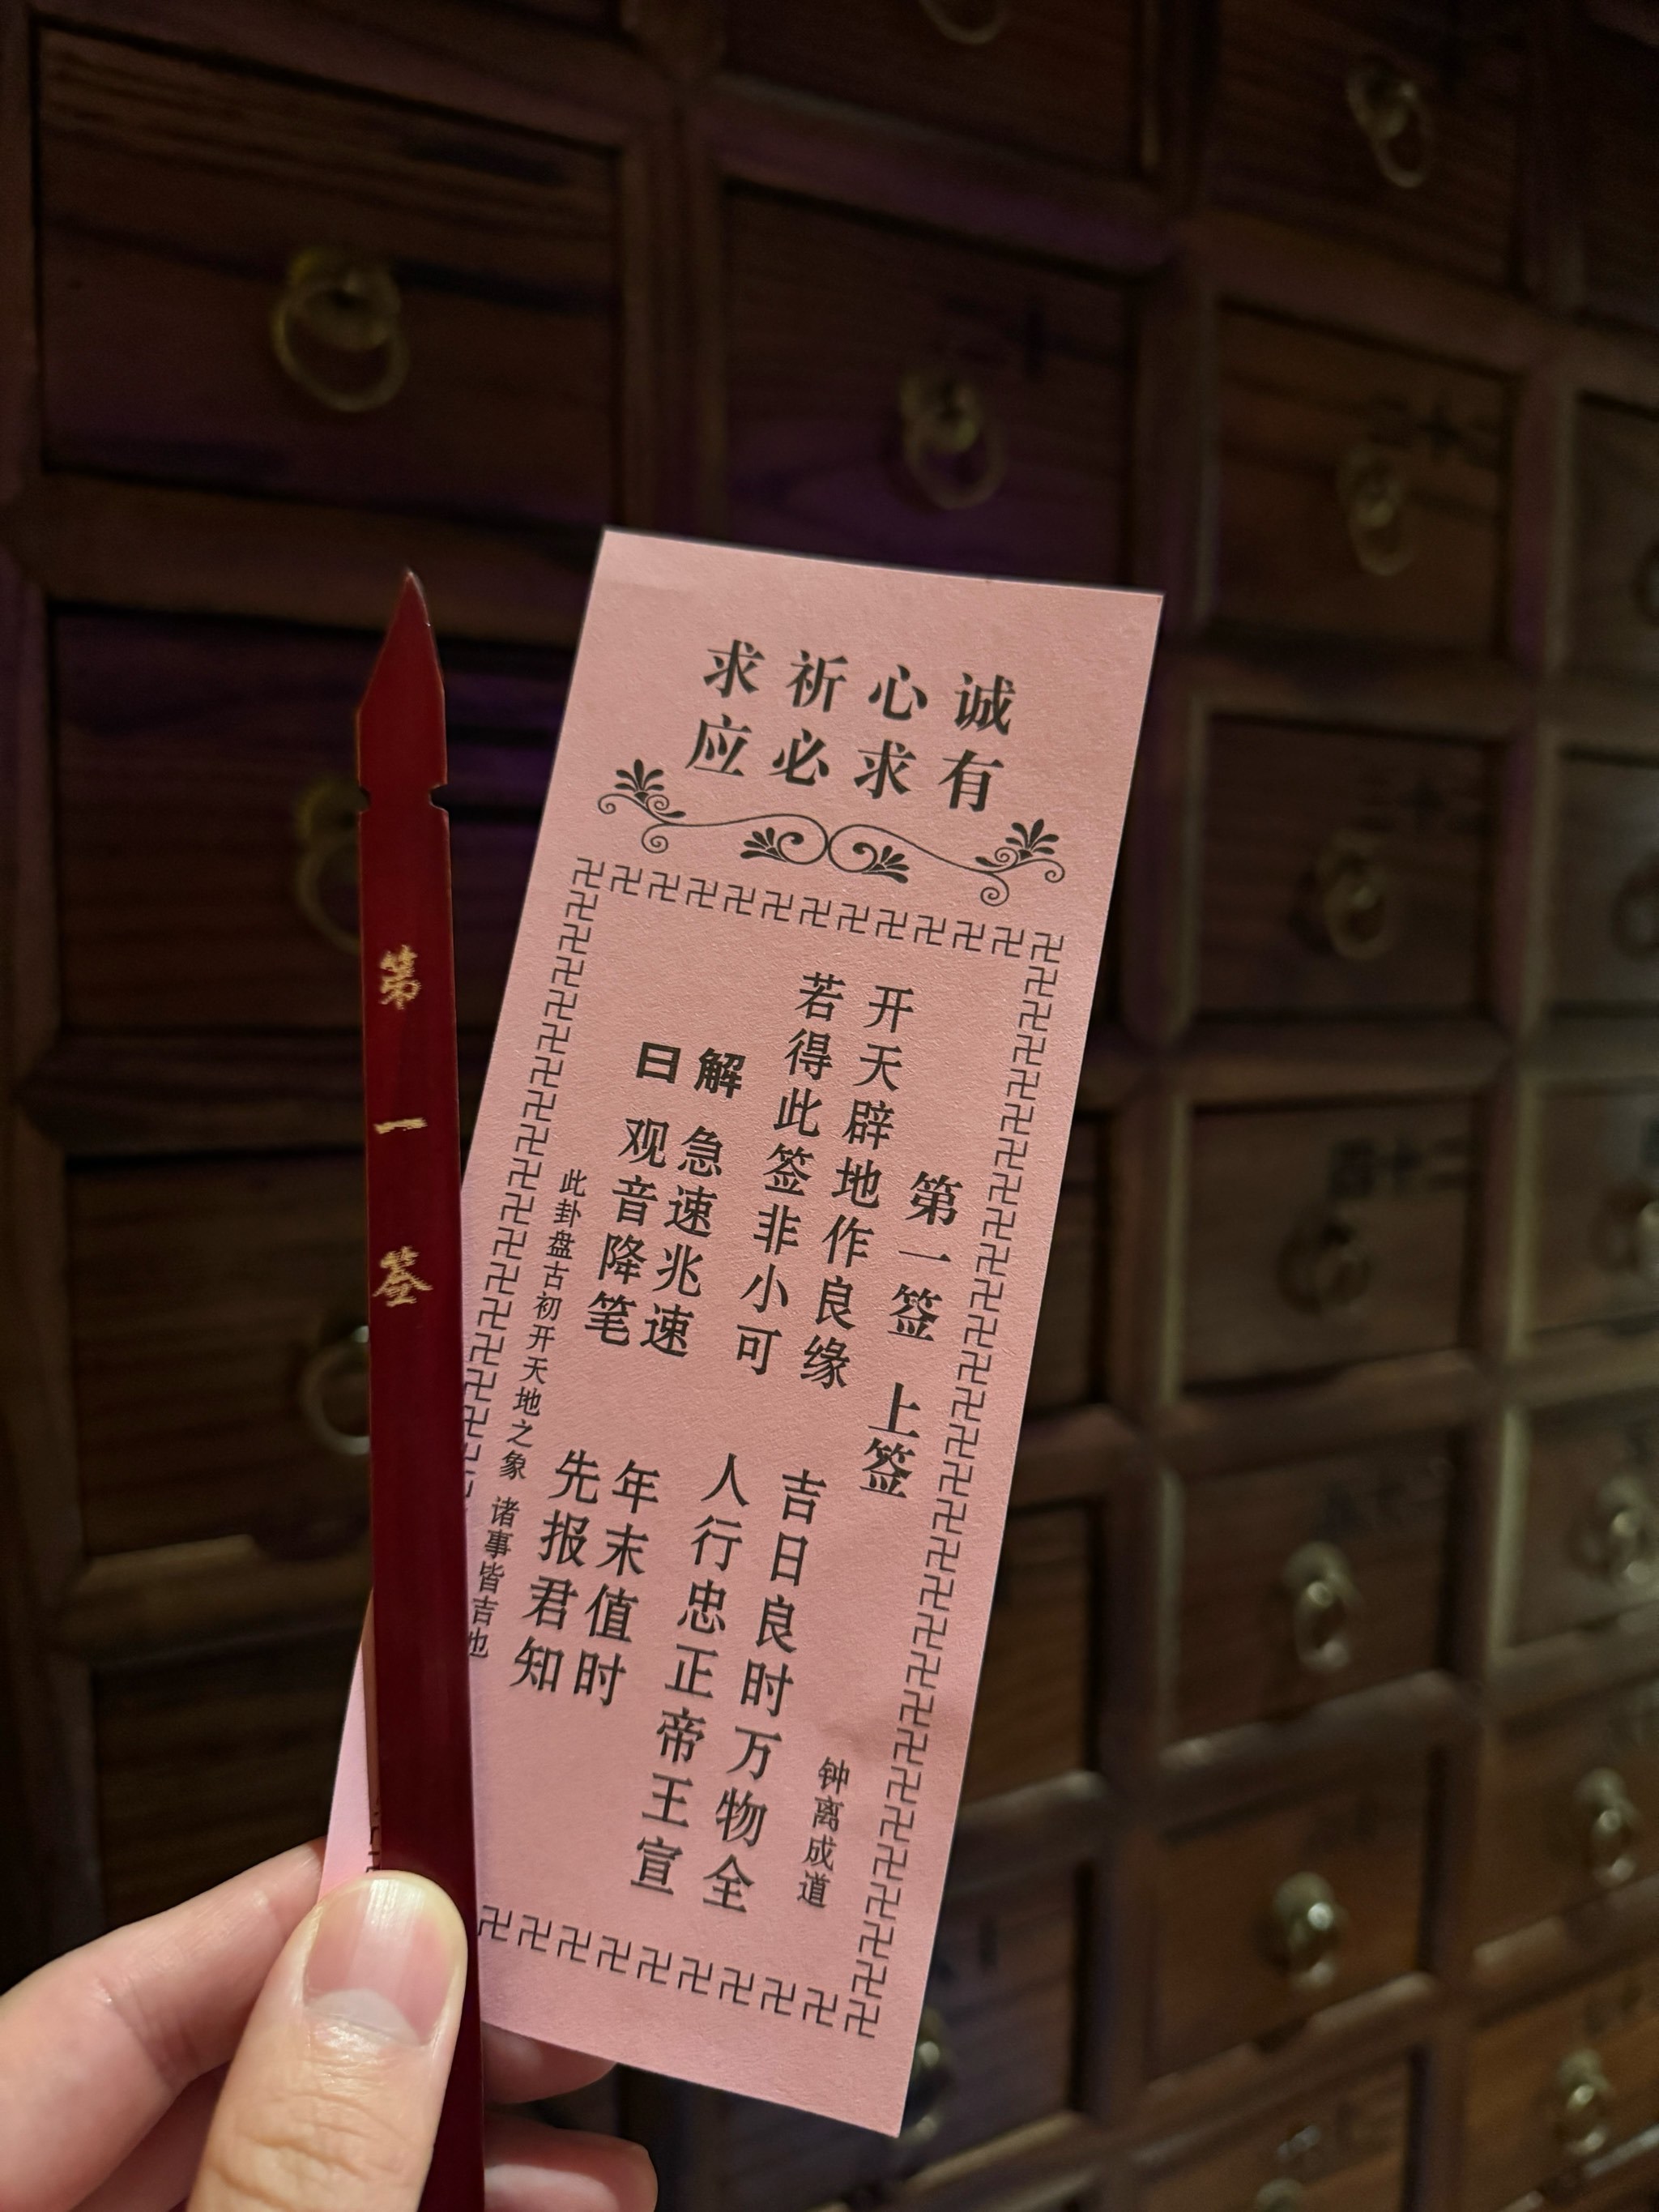 诚心祈求
有求必应
第一签 上签
钟离成道
开天辟地作良缘 吉日良时万物全
若得此签非小可 人行忠正帝王宣
解曰
急速兆速 年末值时
观音降笔 先报君知
此卦盘古初开天地之象 诸事皆吉也
第一签